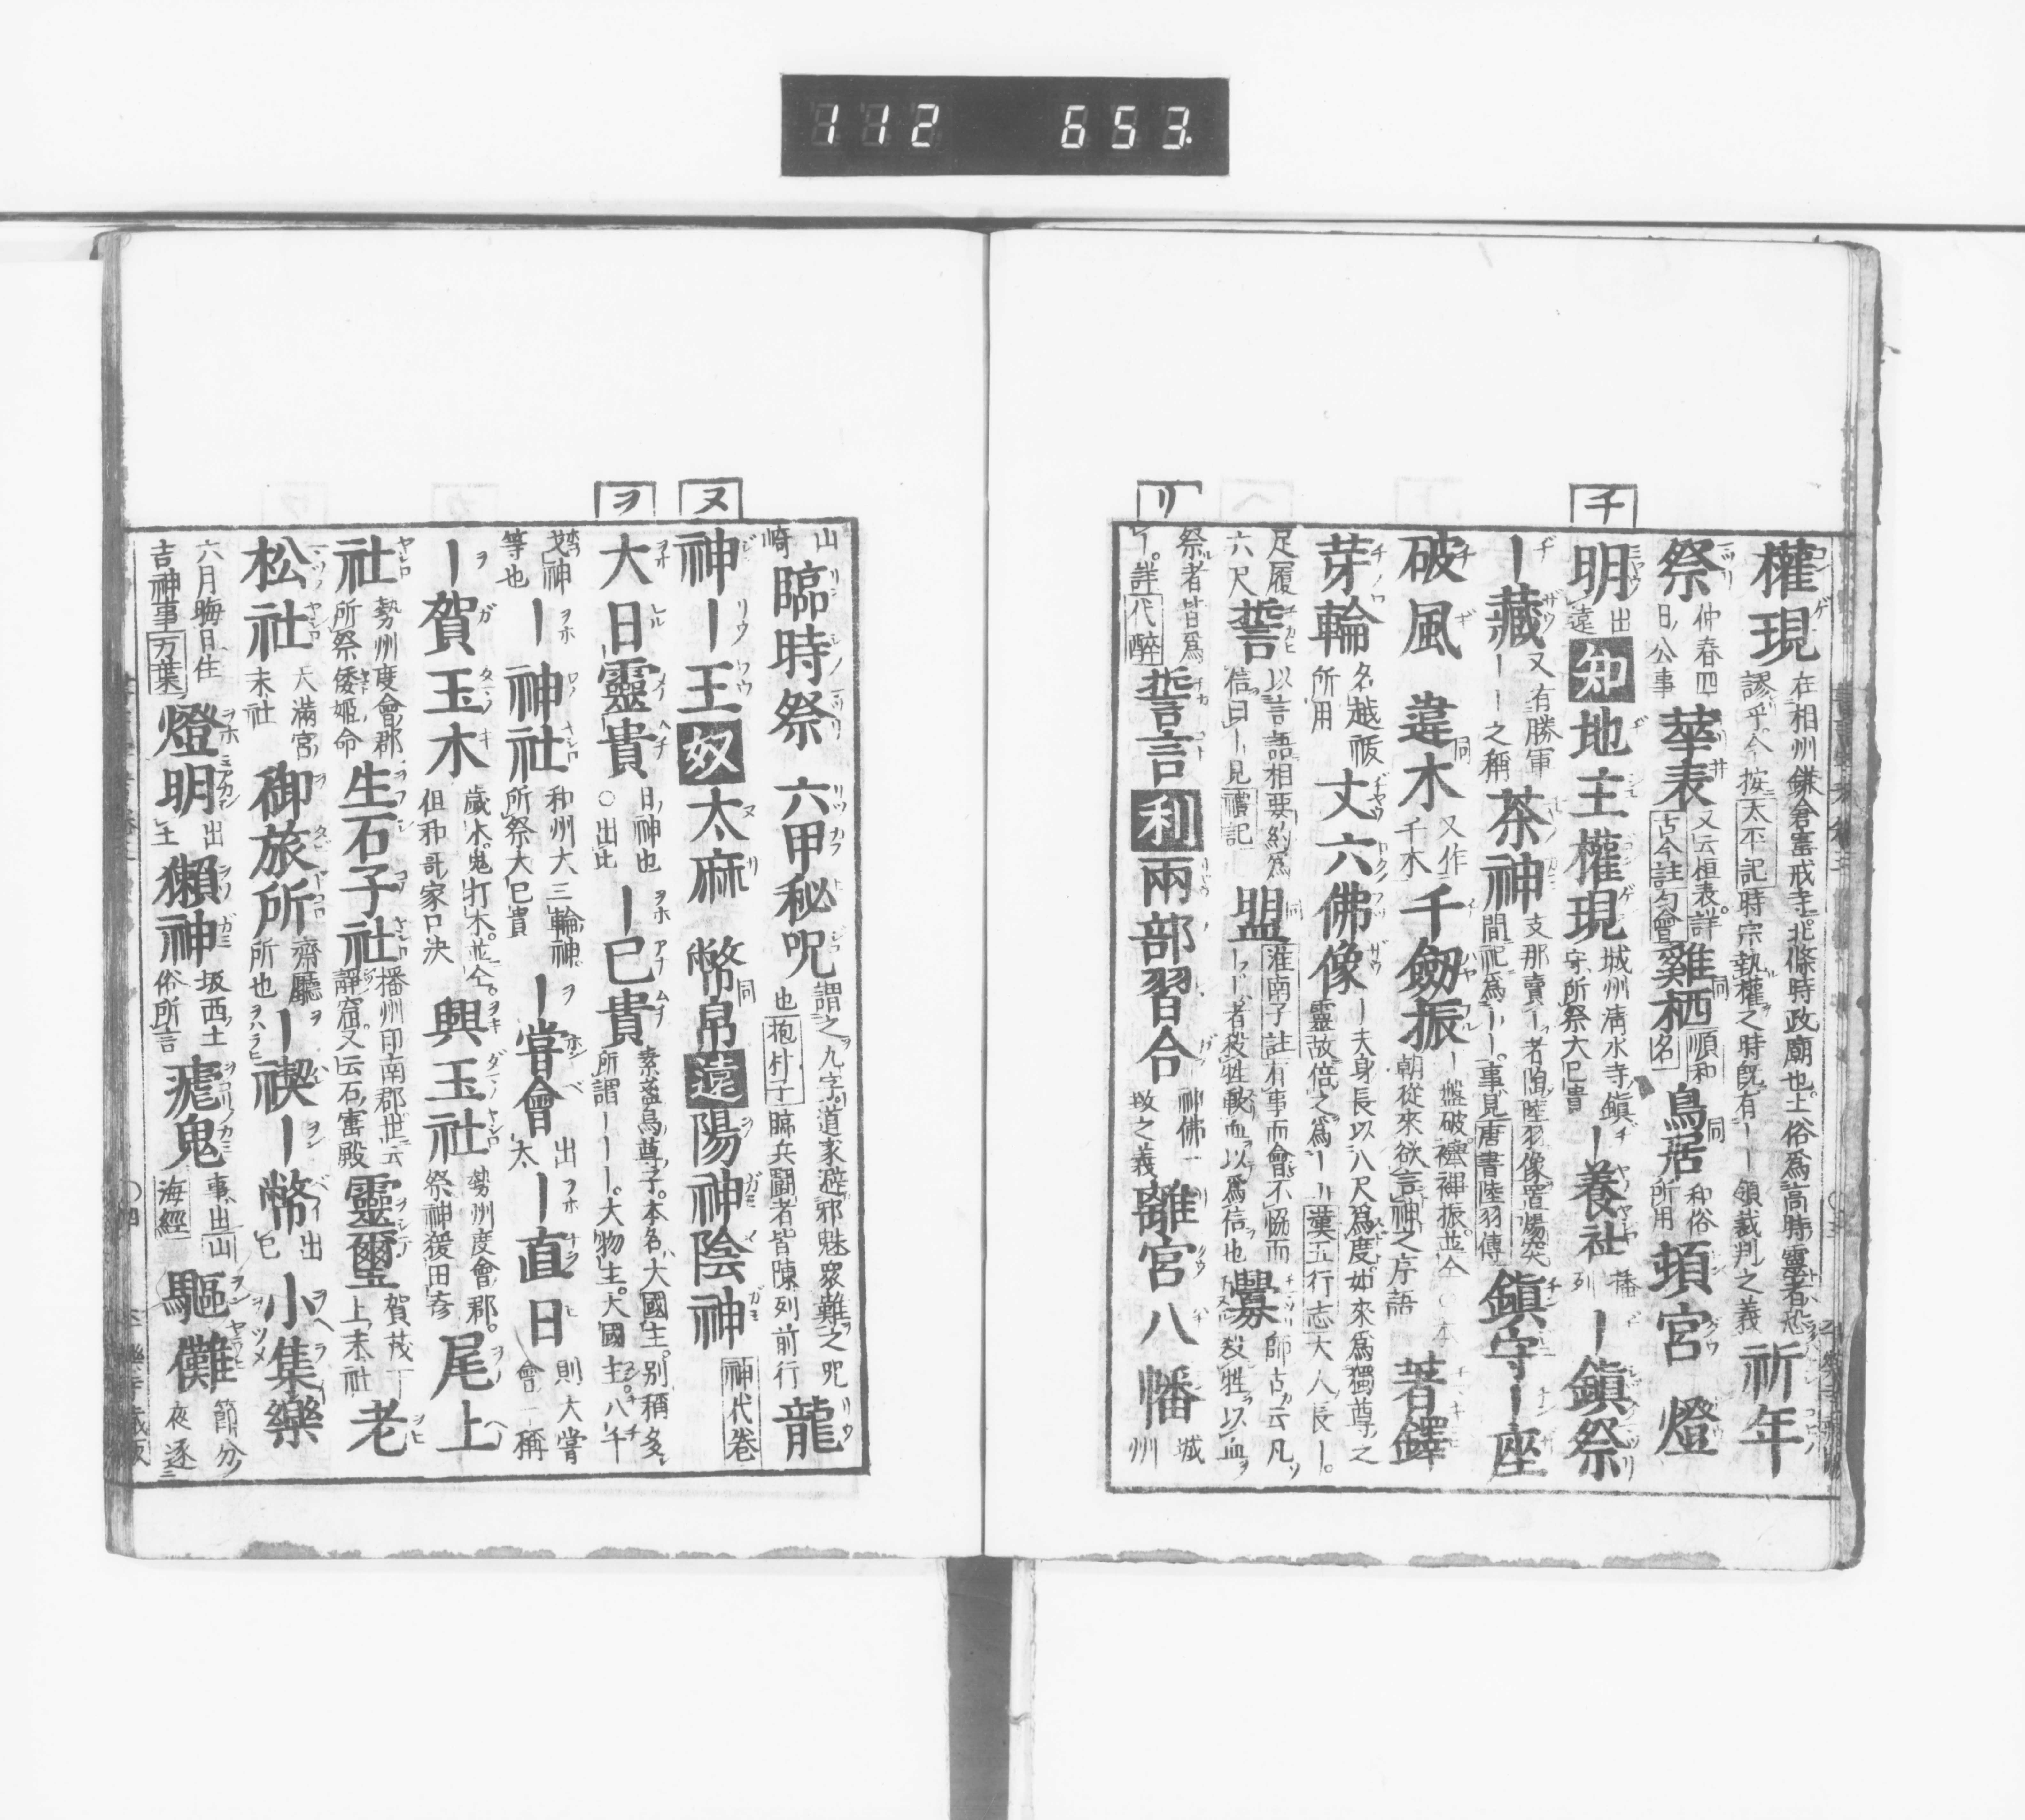 112 653.
チ
リ
權現 在相州鎌倉寳戒寺。北條時政廟也。土俗爲高時靈者恐謬乎。今按太平記時宗執權之時既有ーー領裁判之義 祈年
祭 仲春四日公事 華表 又云恒表。詳古今註句會 雞栖 順和名 鳥居 和俗所用 頓宮 燈
明 出遠 知 地主權現 城州清水寺鎭守所祭大巳貴 ー養社 播列 ー鎭祭
ー藏 又有勝軍ーー之稱 茶神 支那賣ー者陶陸羽像置煬突間祀爲ーー。事見唐書陸羽傳 鎭守ー座
破風 違木 又作千木 千劔振 ー盤破襷神振並仝○本朝從來欲言神之序語 著鐸
芽輪 名越祓所用 丈六佛像 ー夫身長以八尺爲度。如來爲獨尊之靈故倍之爲ーー漢五行志大人長ー。
足履六尺 誓 以言語相要約爲信曰ー見禮記 盟 淮南子註有事而會不協而ー。ー者殺牲歃血以爲信也 釁 師古云凡殺牲以血
祭者皆爲ー。詳代醉 誓言 利 兩部習合 神佛一致之義 離宮八幡 城州
ヌ
ヲ
山崎 臨時祭 六甲秘呪 謂之九字。道家避邪魅衆難之呪也抱朴子臨兵鬪者皆陳列前行 龍
神ー王 奴 太麻 幣帛 遠 陽神陰神 神代卷
大日靈貴 日神也○出比 ー巳貴 素盞烏尊子。本名大國主。別稱多所謂ーーー。大物主。大國主。八千
戈神等也 ー神社 和州大三輪神所祭大巳貴 ー嘗會 出太 ー直日 則大嘗會一稱
ー賀玉木 歳木。鬼打木。並仝。但和哥家口決 興玉社 勢州度會郡。祭神猨田彦 尾上
社 勢州度會郡所祭倭姫命 生石子社 播州印南郡世云靜窟。又云石寳殿 靈璽 賀茂上末社 老
松社 天滿宮末社 御旅所 齋廳所也 ー禊ー幣 出巳 小集樂
六月晦日住吉神事万葉 燈明 出土 獺神 坂西土俗所言 瘧鬼 事出山海經 驅儺 節分夜逐